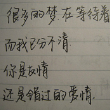 很多的梦在等待着
而我已分不清
你是友情
还是错过的爱情.